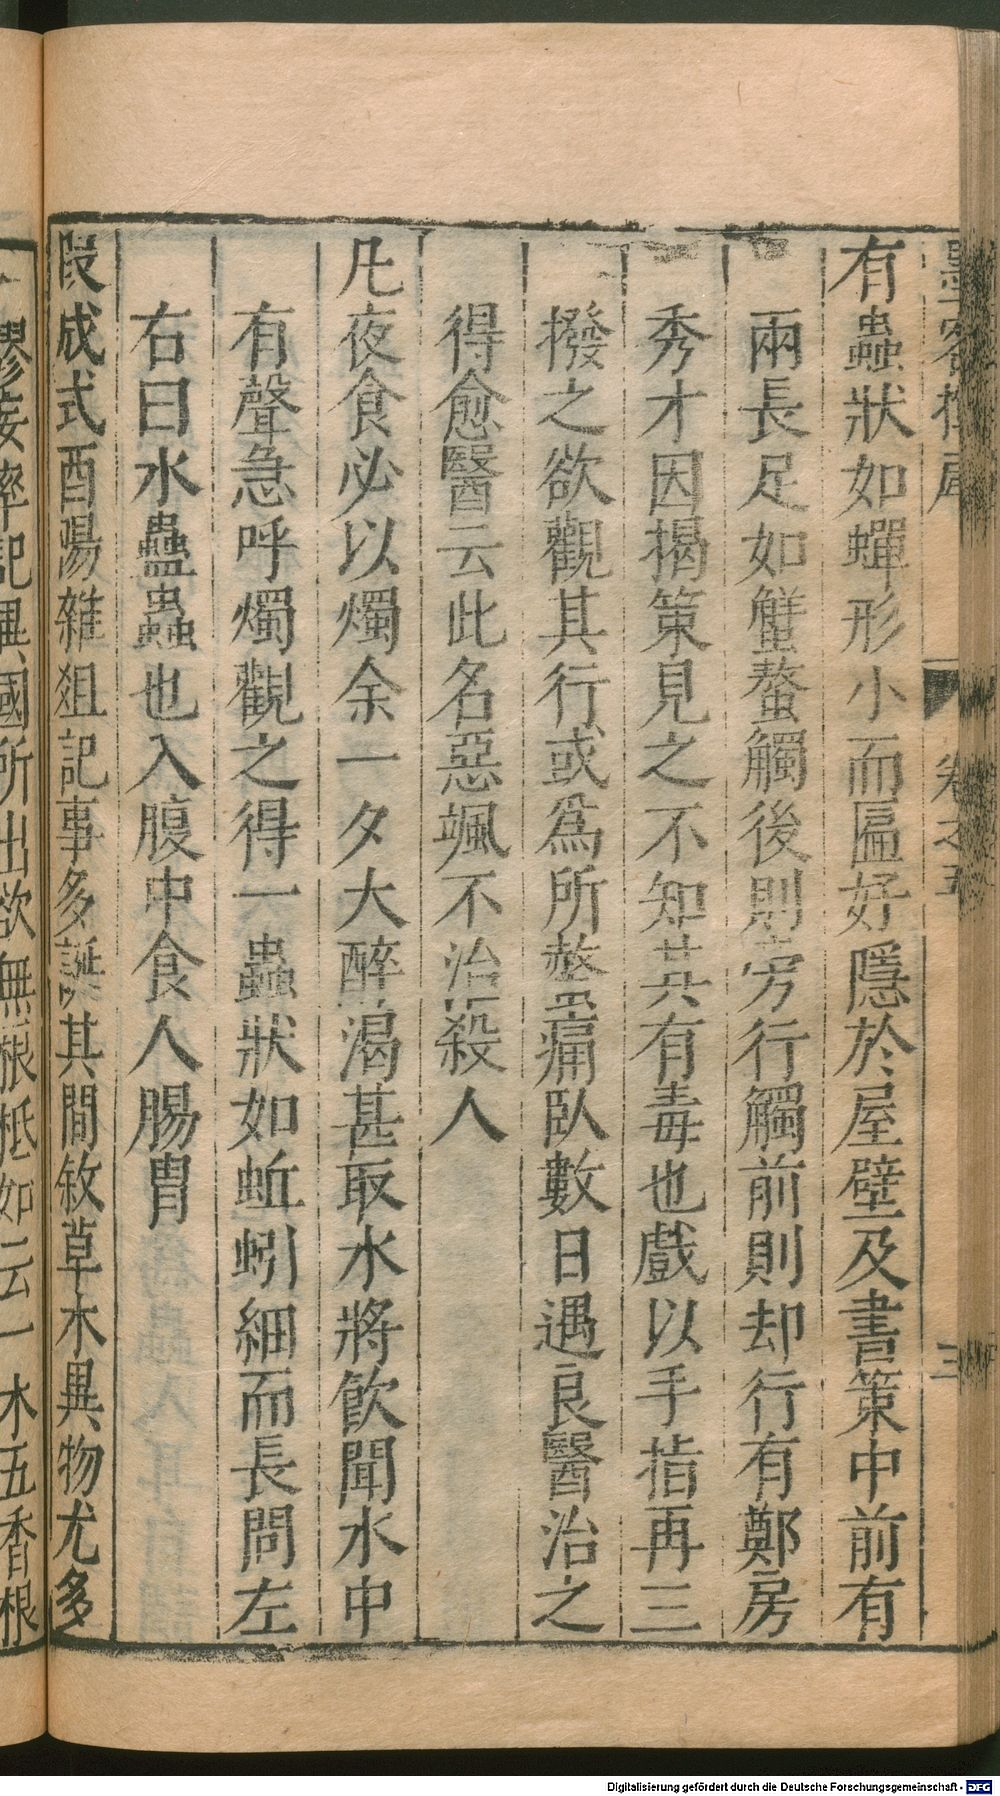 墨客揮犀 卷之五 三
有蟲狀如蟬形小而匾好隱於屋壁及書策中前有
兩長足如蟹螯觸後則旁行觸前則却行有鄭房
秀才因揭策見之不知其有毒也戲以手指再三
撥之欲觀其行或爲所螫困痛臥數日遇良醫治之
得愈醫云此名惡颯不治殺人
凡夜食必以燭余一夕大醉渴甚取水將飲聞水中
有聲急呼燭觀之得一蟲狀如蚯蚓細而長問左
右曰水蠱蟲也入腹中食人腸胃
段成式酉陽雜俎記事多誕其間敘草木異物尤多
謬妄率記異國所出欲無根柢如云一木五香根
Digitalisierung gefördert durch die Deutsche Forschungsgemeinschaft - DFG